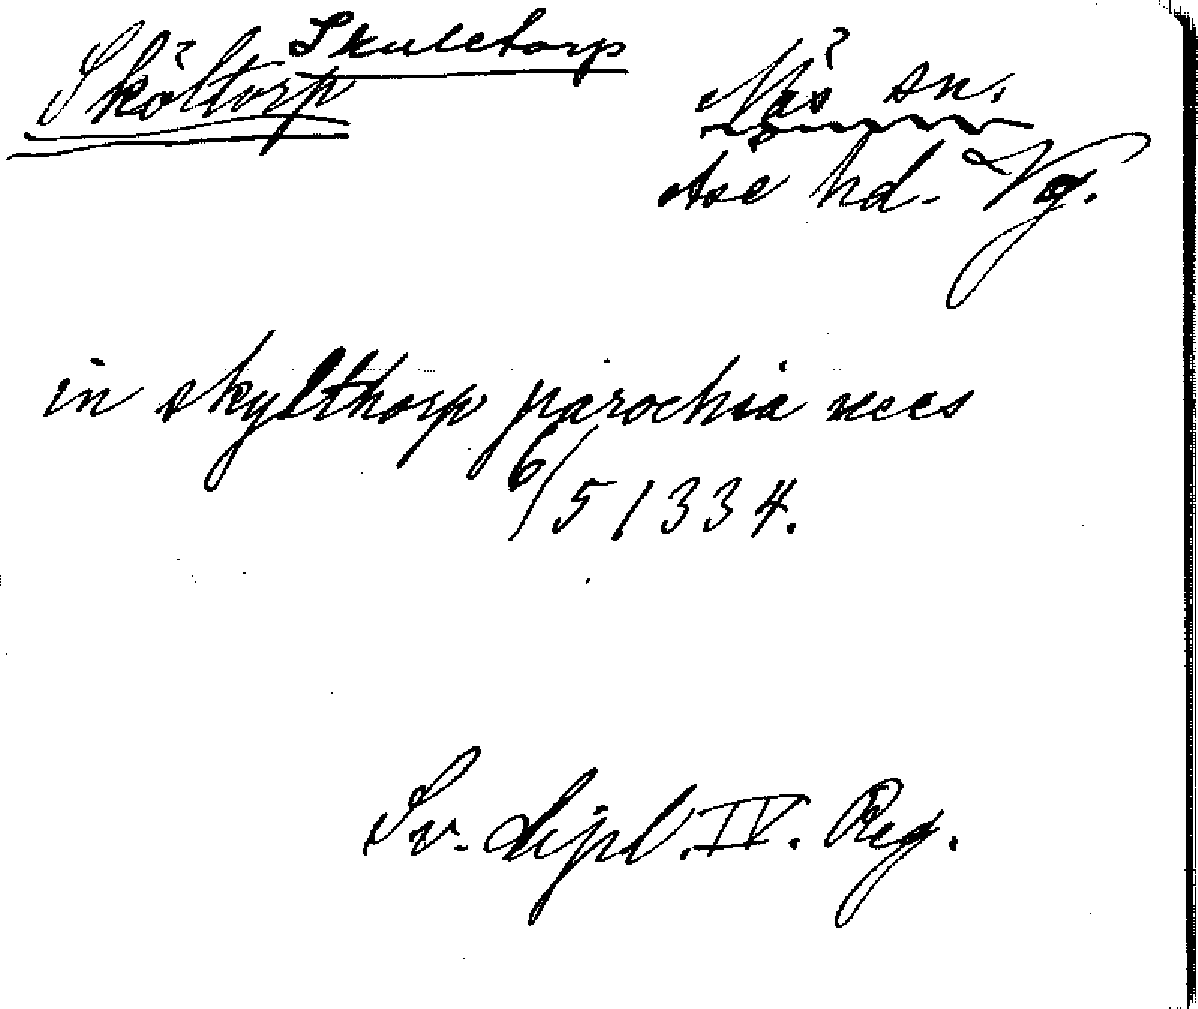 Skultorp
Sköltorp
Näs sn.
Åse hd. Vg.
in skylthorp parochia nees
6/5 1334.
Sv. Dipl. IV. Reg.